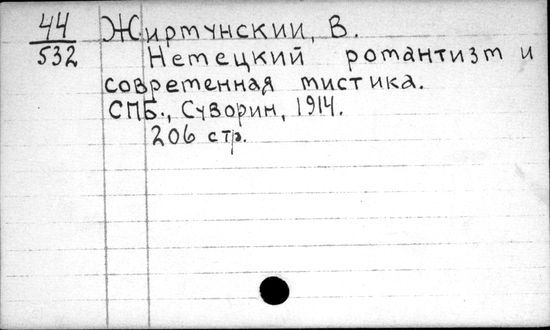 44 Жирмунский, В.
532 Немецкий романтизм и
современная мистика.
СПБ., Суворин, 1914.
206 стр.